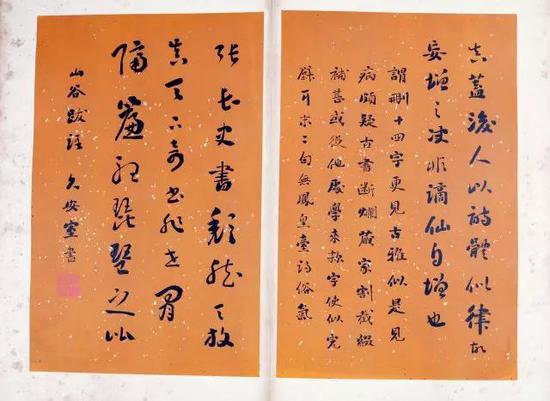 蓋後人以詩體似律故
妄增之決非謫仙自增也
謂刪十四字更見古雅似是見
病頗疑古書斷爛藏家割截綴
補甚或從他處學來數字使似完
可末二句無鳳皇臺詩俗氣
張長史書顛然天放
真天下奇書非世間
隔簾聽琵琶之比
山谷跋語 久安室書